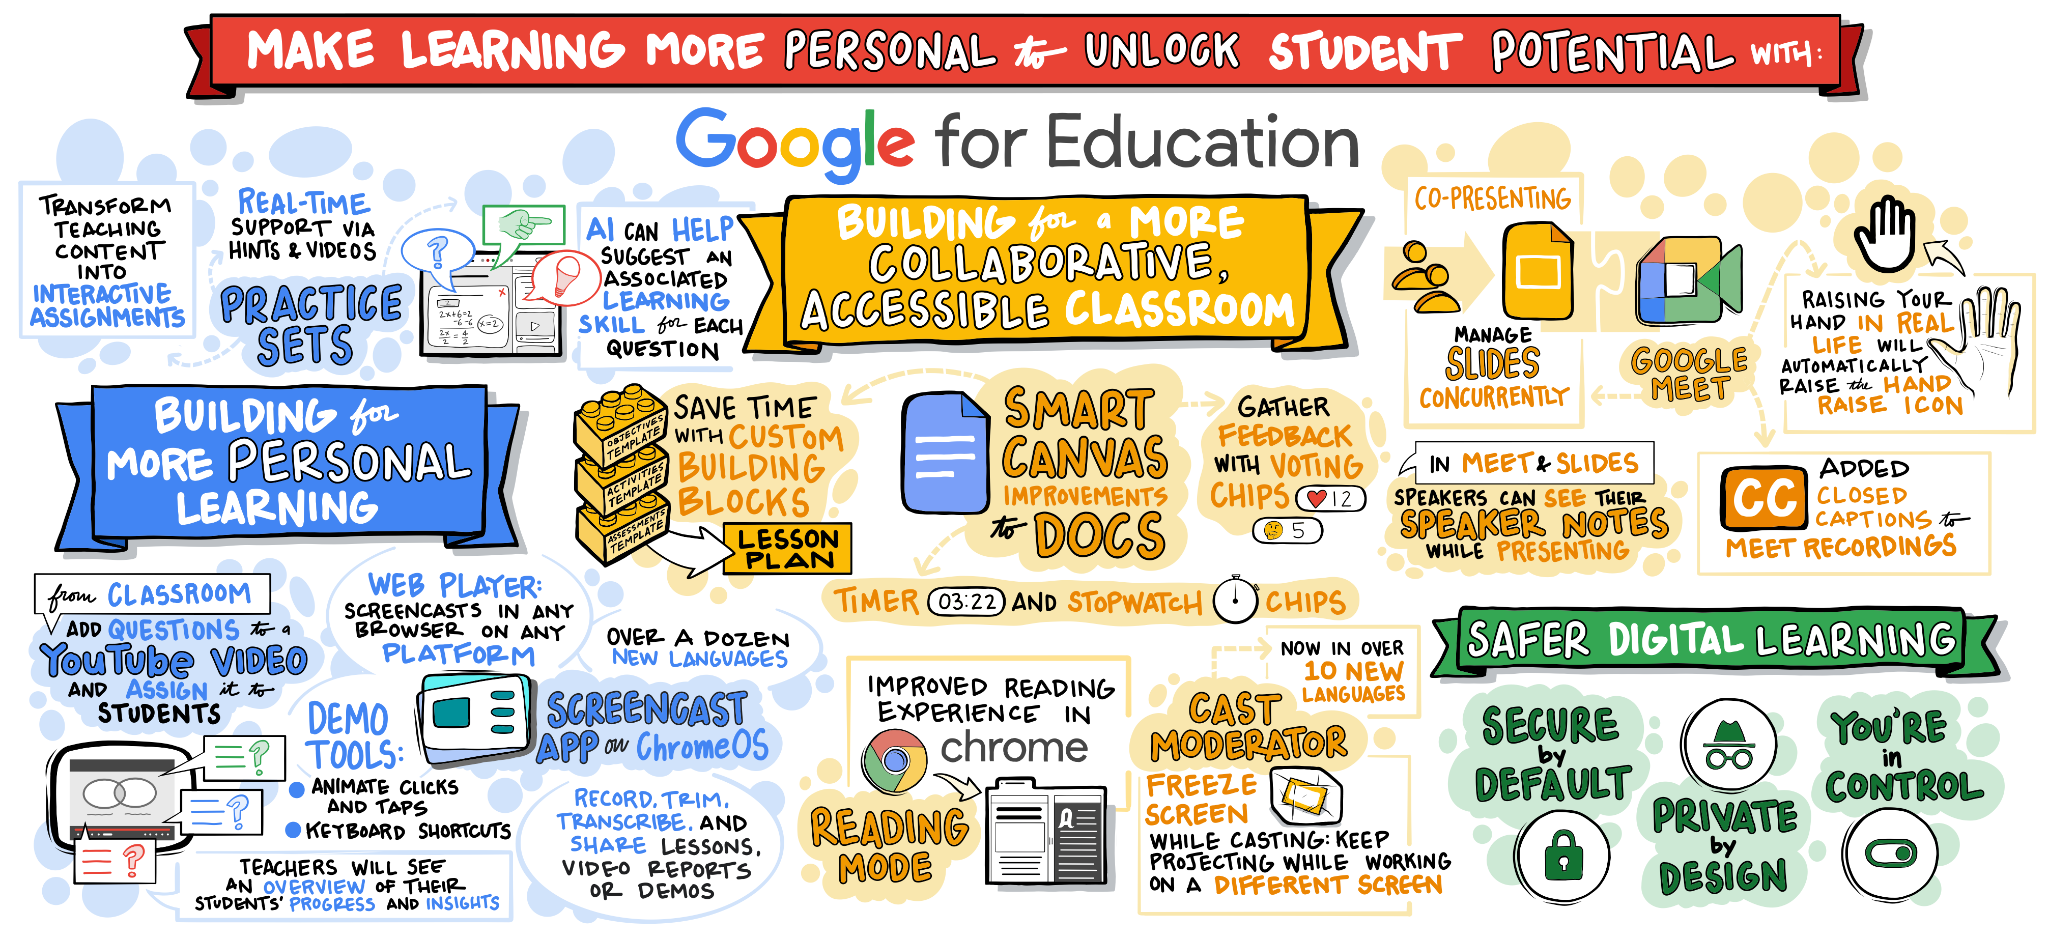 MAKE LEARNING MORE PERSONAL to UNLOCK STUDENT POTENTIAL WITH:
Google for Education
TRANSFORM
TEACHING
CONTENT
INTO
INTERACTIVE
ASSIGNMENTS
REAL-TIME
SUPPORT VIA
HINTS & VIDEOS
PRACTICE
SETS
?
2x+6=2
-6 -6
2x = 4
2 2
x=2
AI CAN HELP
SUGGEST AN
ASSOCIATED
LEARNING
SKILL for EACH
QUESTION
BUILDING for
MORE PERSONAL
LEARNING
from CLASSROOM
ADD QUESTIONS to a
YouTube VIDEO
AND ASSIGN it to
STUDENTS
?
?
?
TEACHERS WILL SEE
AN OVERVIEW OF THEIR
STUDENTS' PROGRESS AND INSIGHTS
WEB PLAYER:
SCREENCASTS IN ANY
BROWSER ON ANY
PLATFORM
OVER A DOZEN
NEW LANGUAGES
DEMO
TOOLS:
ANIMATE CLICKS
AND TAPS
KEYBOARD SHORTCUTS
SCREENCAST
APP on ChromeOS
RECORD, TRIM,
TRANSCRIBE, AND
SHARE LESSONS,
VIDEO REPORTS
OR DEMOS
BUILDING for a MORE
COLLABORATIVE,
ACCESSIBLE CLASSROOM
OBJECTIVES
TEMPLATE
ACTIVITIES
TEMPLATE
ASSESSMENTS
TEMPLATE
SAVE TIME
WITH CUSTOM
BUILDING
BLOCKS
LESSON
PLAN
SMART
CANVAS
IMPROVEMENTS
to DOCS
GATHER
FEEDBACK
WITH VOTING
CHIPS 12
5
TIMER 03:22 AND STOPWATCH CHIPS
IMPROVED READING
EXPERIENCE IN
chrome
READING
MODE
NOW IN OVER
10 NEW
LANGUAGES
CAST
MODERATOR
FREEZE
SCREEN
WHILE CASTING: KEEP
PROJECTING WHILE WORKING
ON A DIFFERENT SCREEN
CO-PRESENTING
MANAGE
SLIDES
CONCURRENTLY
GOOGLE
MEET
RAISING YOUR
HAND IN REAL
LIFE WILL
AUTOMATICALLY
RAISE the HAND
RAISE ICON
IN MEET & SLIDES
SPEAKERS CAN SEE THEIR
SPEAKER NOTES
WHILE PRESENTING
CC
ADDED
CLOSED
CAPTIONS to
MEET RECORDINGS
SAFER DIGITAL LEARNING
SECURE
by
DEFAULT
PRIVATE
by
DESIGN
YOU'RE
in
CONTROL